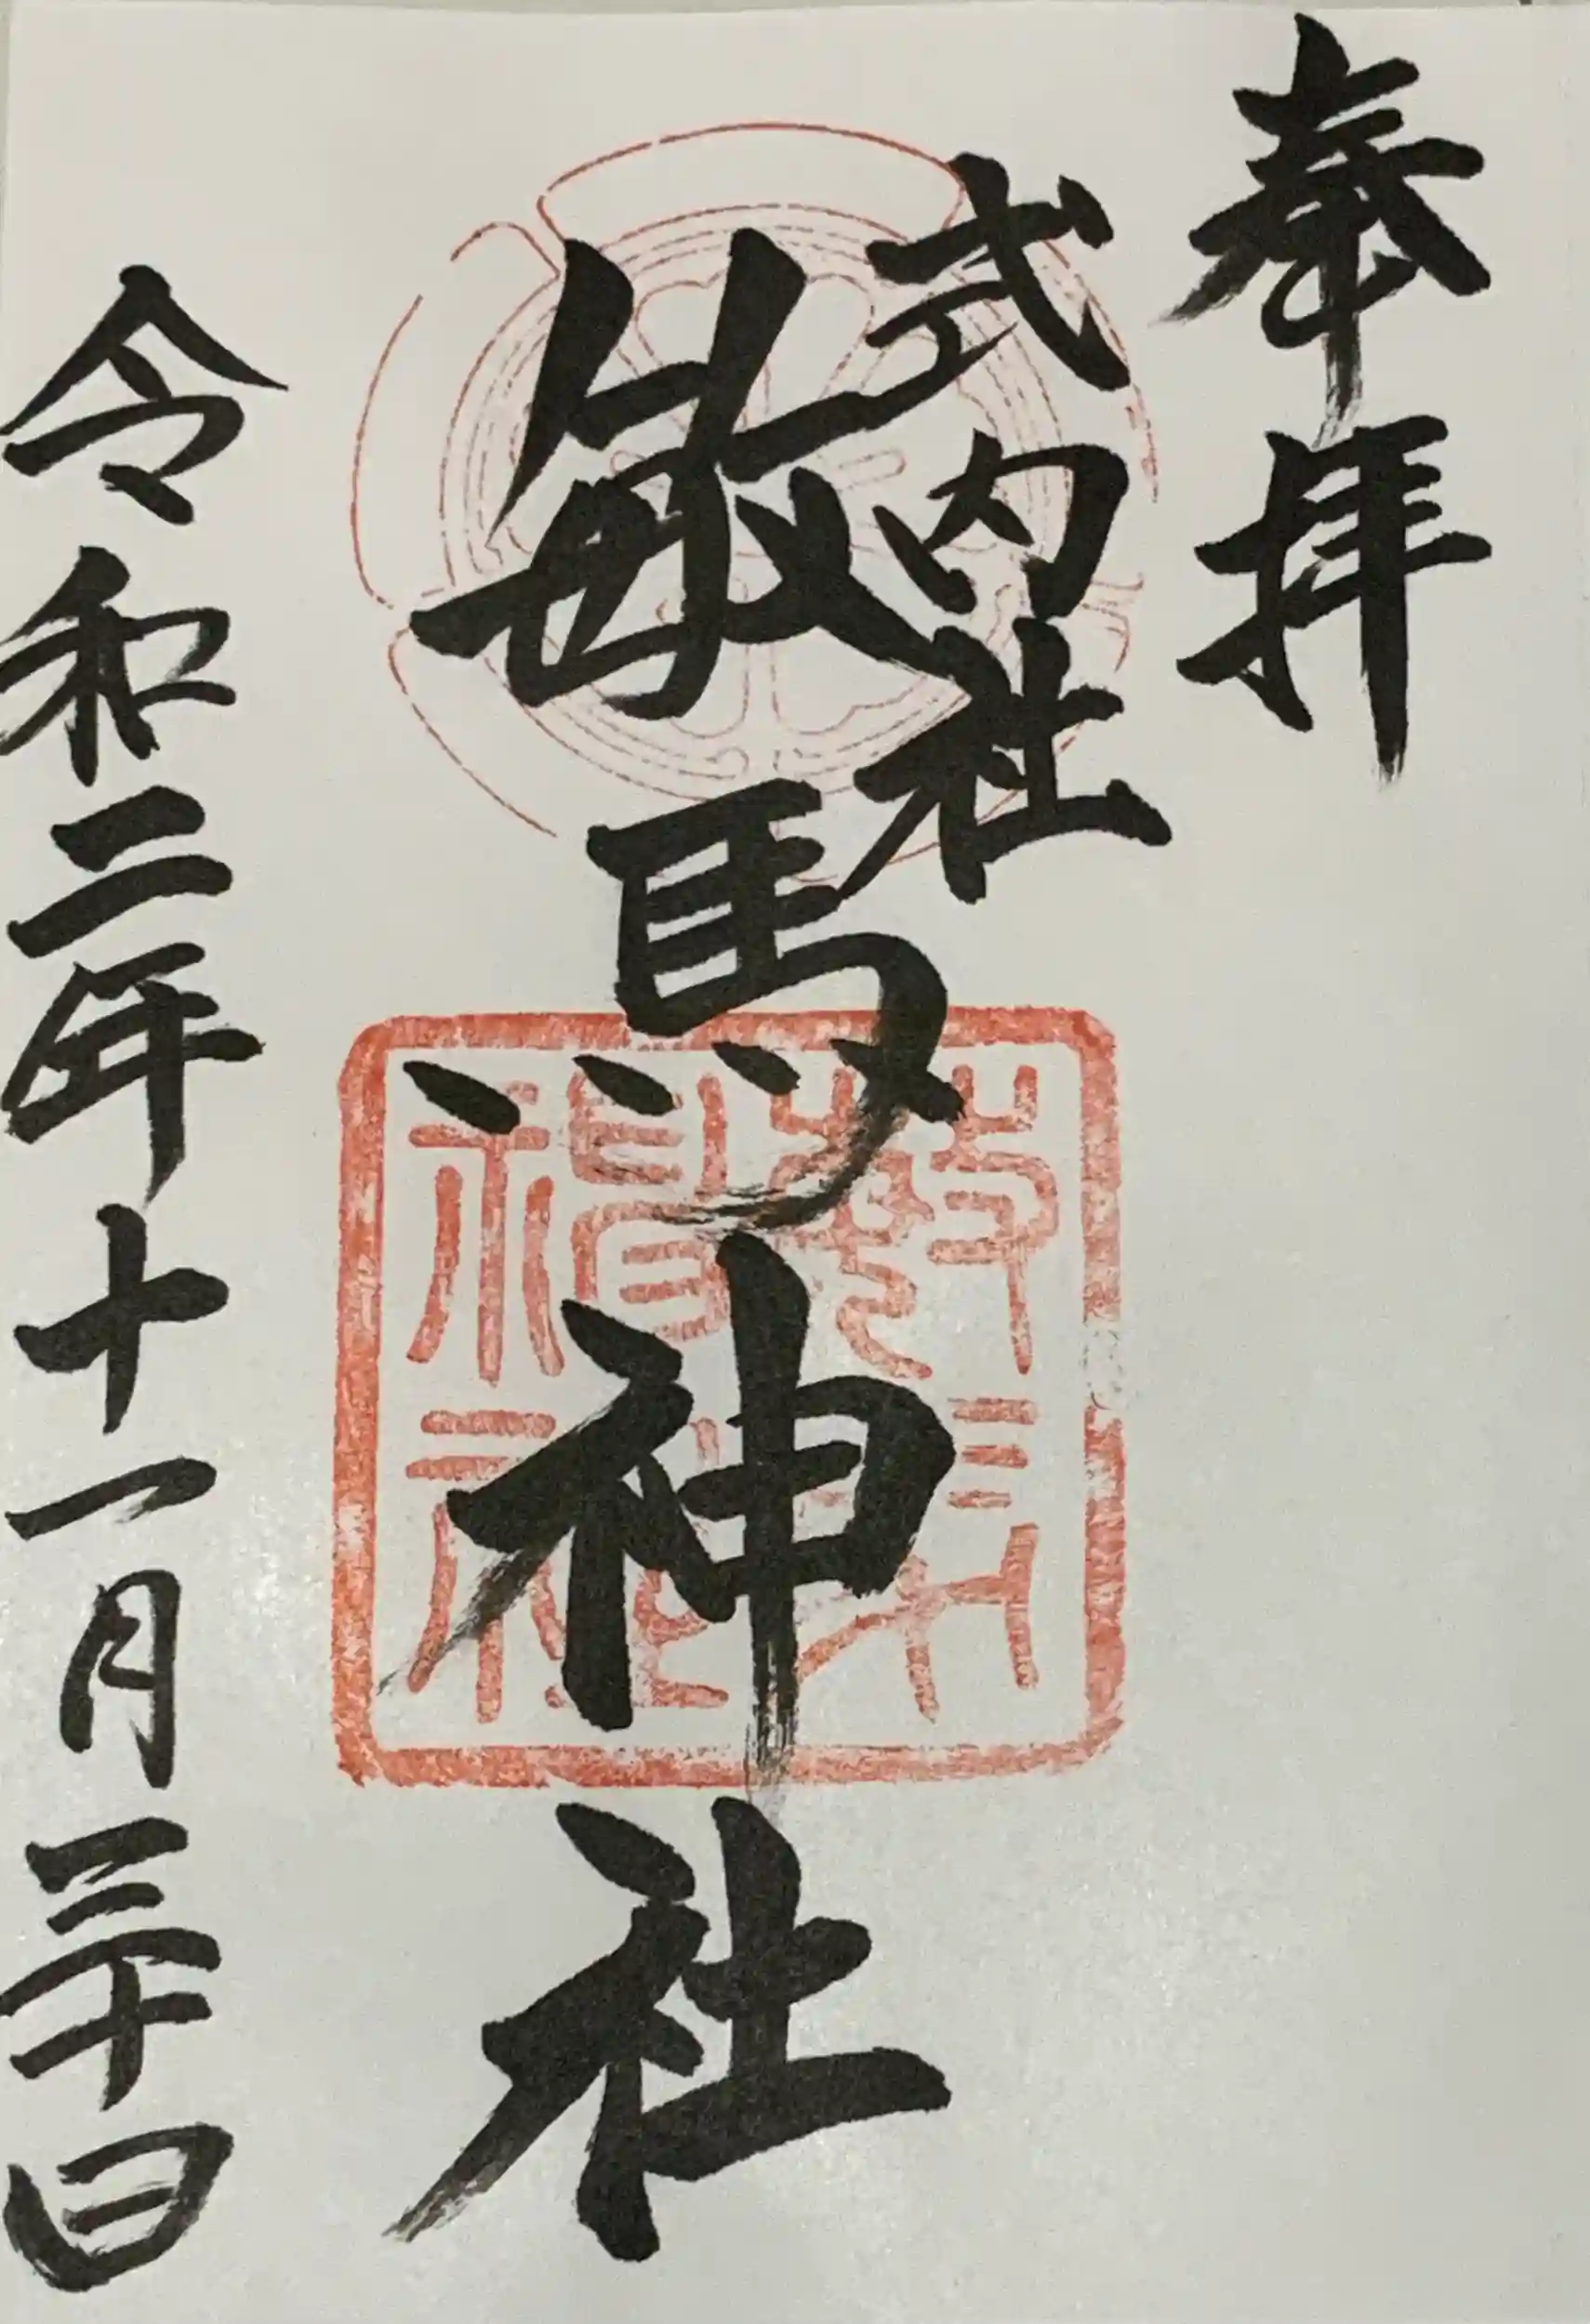 奉拝
式内社
敏馬神社
令和二年十一月三十日